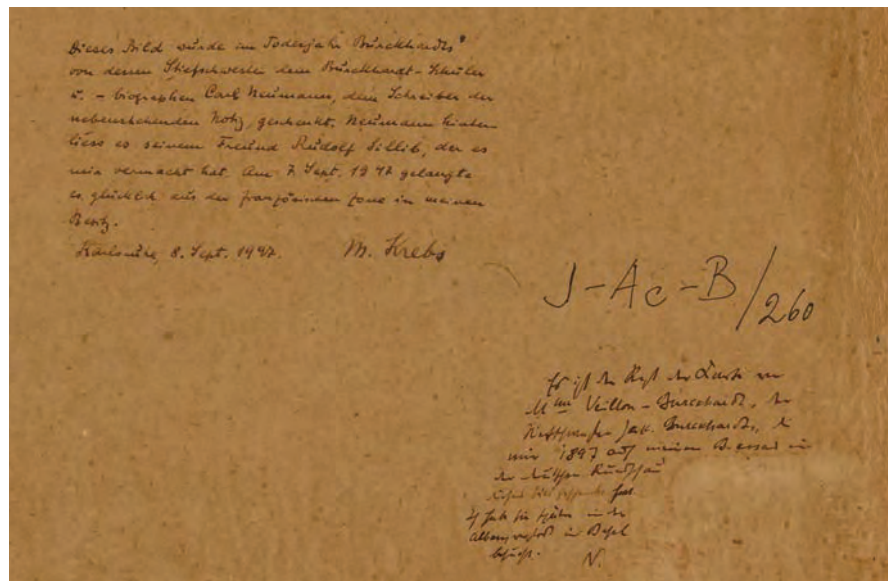 Dieses Bild wurde im Todesjahr Burckhardts
von dessen Stiefschwester dem Burckhardt-Schüler
u. - biographen Carl Neumann, dem Schreiber der
nebenstehenden Notiz, geschenkt. Neumann hinter-
liess es seinem Freund Rudolf Sillib, der es
mir vermacht hat. Am 7. Sept. 1947 gelangte
es glücklich aus der französischen Zone in meinen
Besitz.
Karlsruhe, 8. Sept. 1947. M. Krebs
J-Ac-B/260
Es ist der Rest der Karte von
Mme Veillon-Burckhardt, der
Jak. Burckhardts, die
mir 1897 auf meinen in
der deutschen Rundschau
dieses Bild geschenkt hat.
Ich habe sie später in der
in Basel
besucht. N.